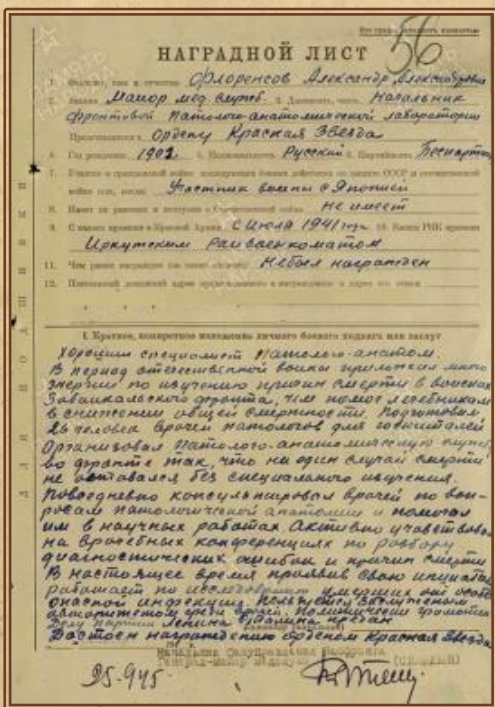 56
НАГРАДНОЙ ЛИСТ
1. Фамилия, имя и отчество Флоренсов Александр Александрович
2. Звание Майор мед. служб. 3. Должность, часть Начальник
фронтовой патолого-анатомической лаборатории
Представляется к Ордену Красная Звезда
4. Год рождения 1902 5. Национальность Русский 6. Партийность Беспартийн
7. Участие в гражданской войне, последующих боевых действиях по защите СССР и отечественной
войне (где, когда) Участник войны с Японией
8. Имеет ли ранения и контузии в отечественной войне Не имеет
9. С какого времени в Красной Армии С июля 1941 года 10. Каким РВК призван
Иркутским райвоенкоматом
11. Чем ранее награжден (за какие отличия) Не был награжден
12. Постоянный домашний адрес представляемого к награждению и адрес его семьи
ДЛЯ ПОДШИВКИ
I. Краткое, конкретное изложение личного боевого подвига или заслуг
Хороший специалист патолого-анатом.
В период отечественной войны приложил много
энергии по изучению причин смерти в войсках
Забайкальского фронта, чем помог лечебникам
в снижении общей смертности. Подготовил
человек врачей патологов для госпиталей
Организовал патолого-анатомическую службу
во фронте так, что ни один случай смерти
не оставался без специального изучения.
Повседневно консультировал врачей по воп-
росам патологической анатомии и помогал
им в научных работах. Активно участвовал
на врачебных конференциях по разбору
диагностических ошибок и причин смерти
В настоящее время проявив свою инициат
работает по исследованию умерших от особо
опасной инфекции. Пользуется заслуженым
авторитетом среди врачей. Политически грамотен
Делу партии Ленина Сталина предан
Достоин награждению орденом Красная Звезда
Начальник Сануправления Забфронта
Генерал-майор медслужбы